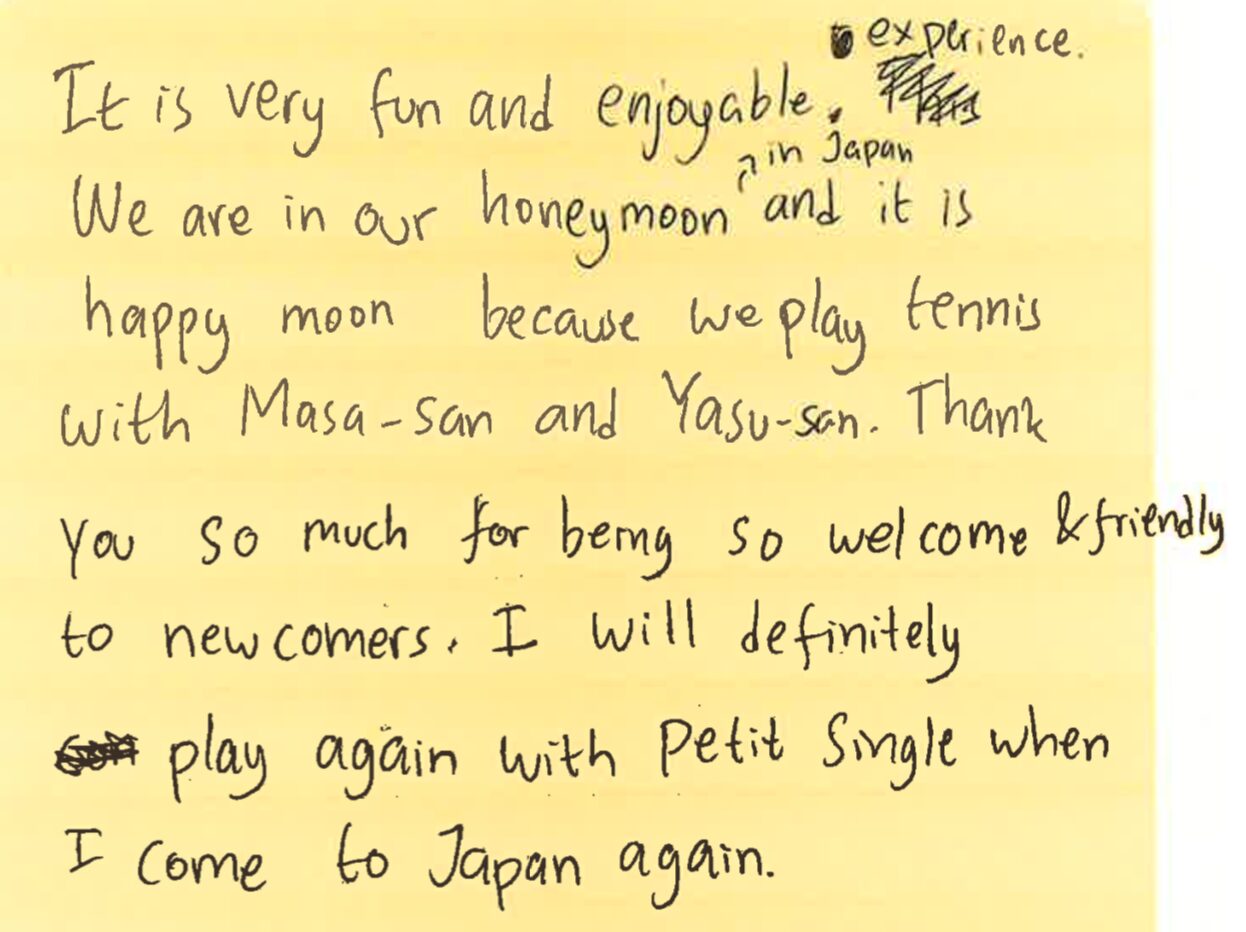 It is very fun and enjoyable. experience.
We are in our honeymoon in Japan and it is
happy moon because we play tennis
with Masa-san and Yasu-san. Thank
you so much for being so welcome & friendly
to newcomers. I will definitely
play again with Petit Single when
I come to Japan again.